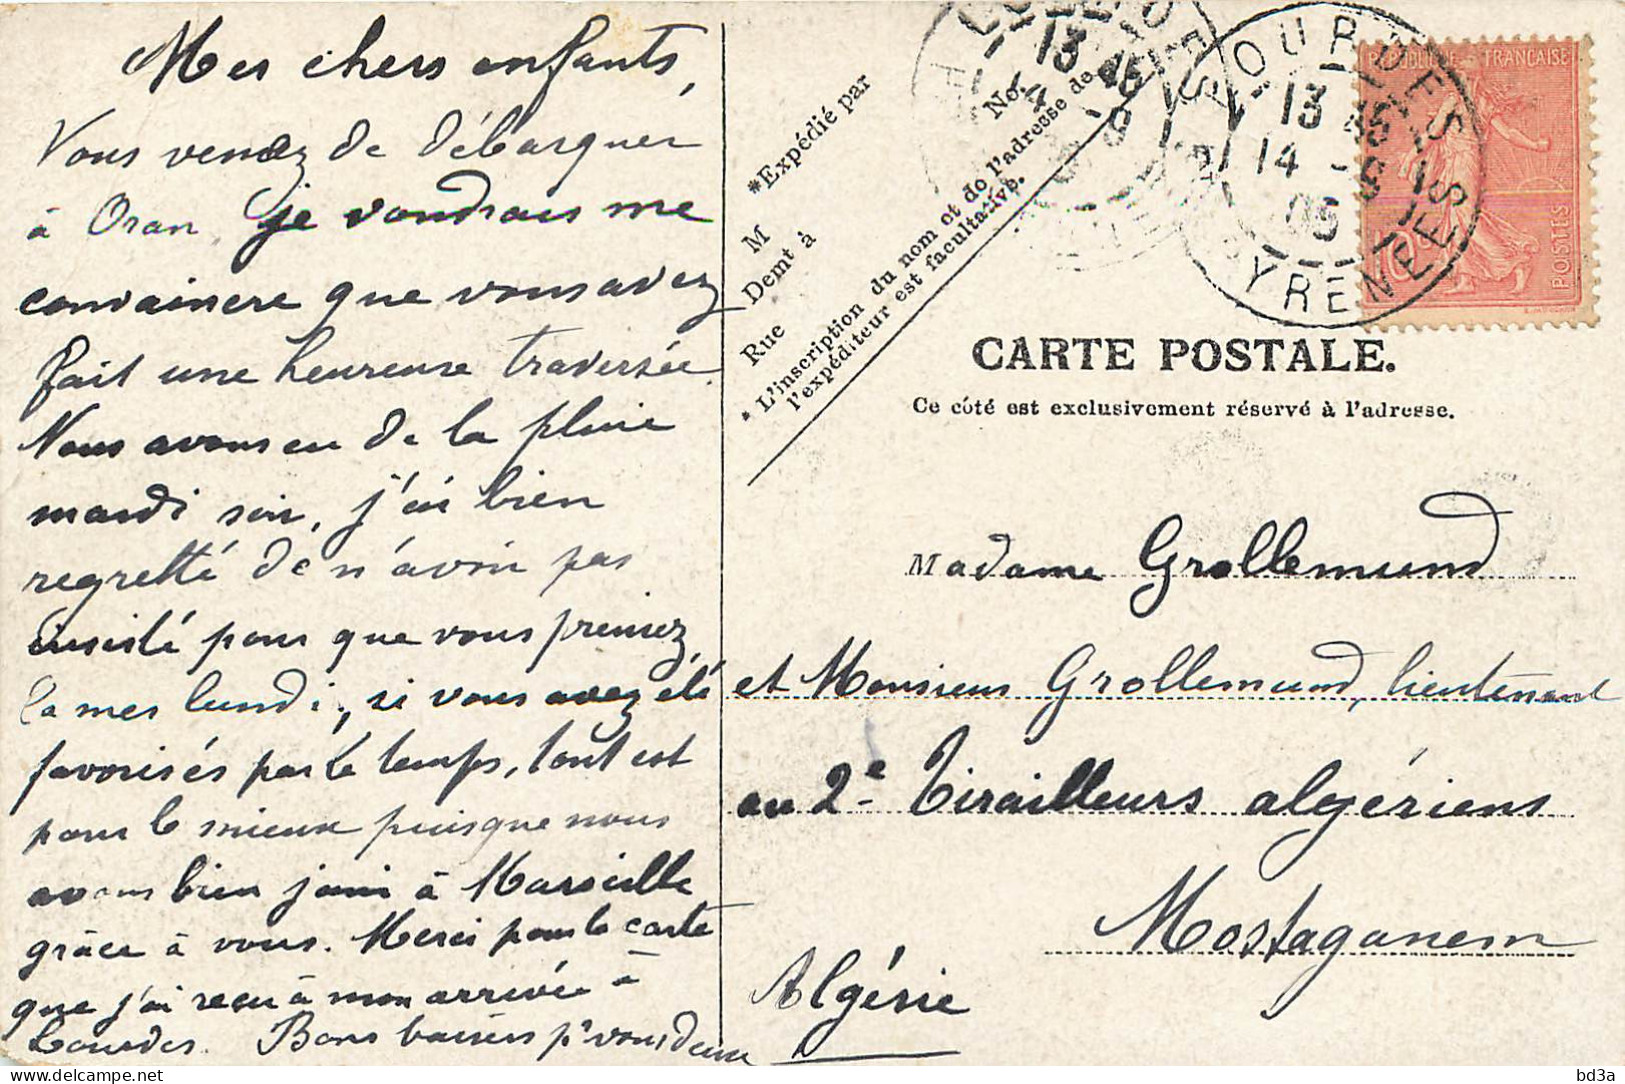 Mes chers enfants,
Vous venez de débarquer
à Oran je voudrais me
convaincre que vous avez
fait une heureuse traversée.
Nous avons eu de la pluie
mardi soir, j'ai bien
regretté de n'avoir pas
insisté pour que vous preniez
la mer lundi, si vous avez été
favorisés par le temps, tout est
pour le mieux puisque nous
avons bien joui à Marseille
grâce à vous. Merci pour la carte
que j'ai reçu à mon arrivée à
Lourdes. Bons baisers pr vous deux
*Expédié par
M
Demt à
Rue
No.
* L'inscription du nom et de l'adresse de
l'expéditeur est facultative.
LOURDES
13 45
14 -9
05
PYRENEES
LOURDES
13 45
14 -9
05
REPUBLIQUE FRANÇAISE
POSTES
10c
CARTE POSTALE.
Ce côté est exclusivement réservé à l'adresse.
Madame Grollemund
et Monsieur Grollemund, lieutenant
au 2e Tirailleurs algériens
Mostaganem
Algérie
delcampe.net
bd3a